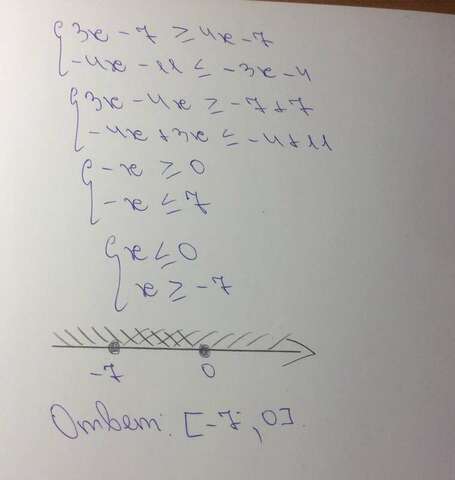 {3x - 7 ≥ 4x - 7
{-4x - 11 ≤ -3x - 4
{3x - 4x ≥ -7 + 7
{-4x + 3x ≤ -4 + 11
{-x ≥ 0
{-x ≤ 7
{x ≤ 0
{x ≥ -7
-7 0
Ответ: [-7, 0].